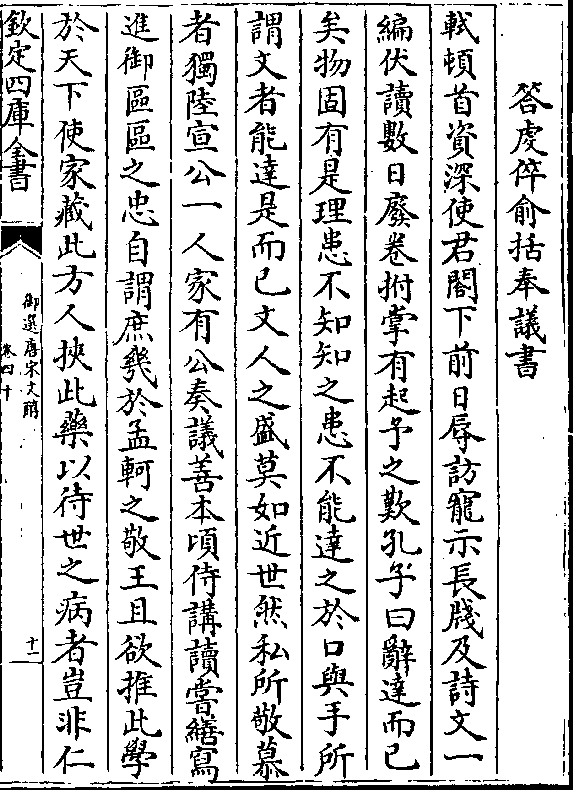 答虔倅俞括奉議書
軾頓首資深使君閣下前日辱訪寵示長牋及詩文一
編伏讀數日廢卷拊掌有起予之歎孔子曰辭達而已
矣物固有是理患不知知之患不能達之於口與手所
謂文者能達是而已文人之盛莫如近世然私所敬慕
者獨陸宣公一人家有公奏議善本頃侍講讀嘗繕寫
進御區區之忠自謂庶幾於孟軻之敬王且欲推此學
於天下使家藏此方人挾此藥以待世之病者豈非仁
欽定四庫全書
御選唐宋文醇
卷四十
十一